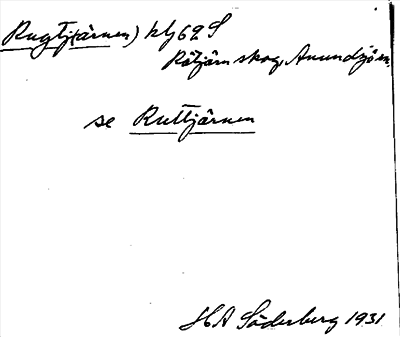 Rugtj(ärnen) htj 62 S
Rötjärn skog, Anundsjö sn.
se Ruttjärnen
HA Söderberg 1931